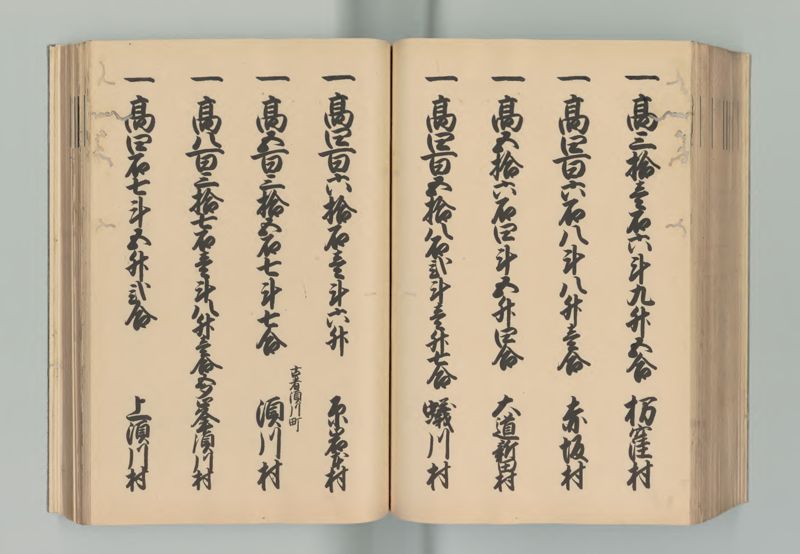 一 高三拾壱石六斗九升五合 栃窪村
一 高四百六石八斗八升壱合 赤坂村
一 高五拾六石四斗五升四合 大道新田村
一 高四百五拾八石弐斗壱升七合 蟻川村
一 高四百六拾石壱斗六升 原岩本村
一 高五百三拾五石七斗七合 須川村
古者須川町
一 高八百三拾七石壱斗八升壱合 須川村
一 高四石七斗五升弐合 上須川村